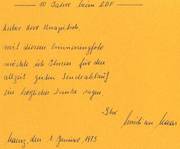 10 Jahre beim ZDF
Lieber Herr
mit diesem Erinnerungsfoto
möchte ich Ihnen für den
allzeit guten Sendeablauf
ein herzliches Danke sagen.
Ihr
Mainz, den 1. Januar 1973